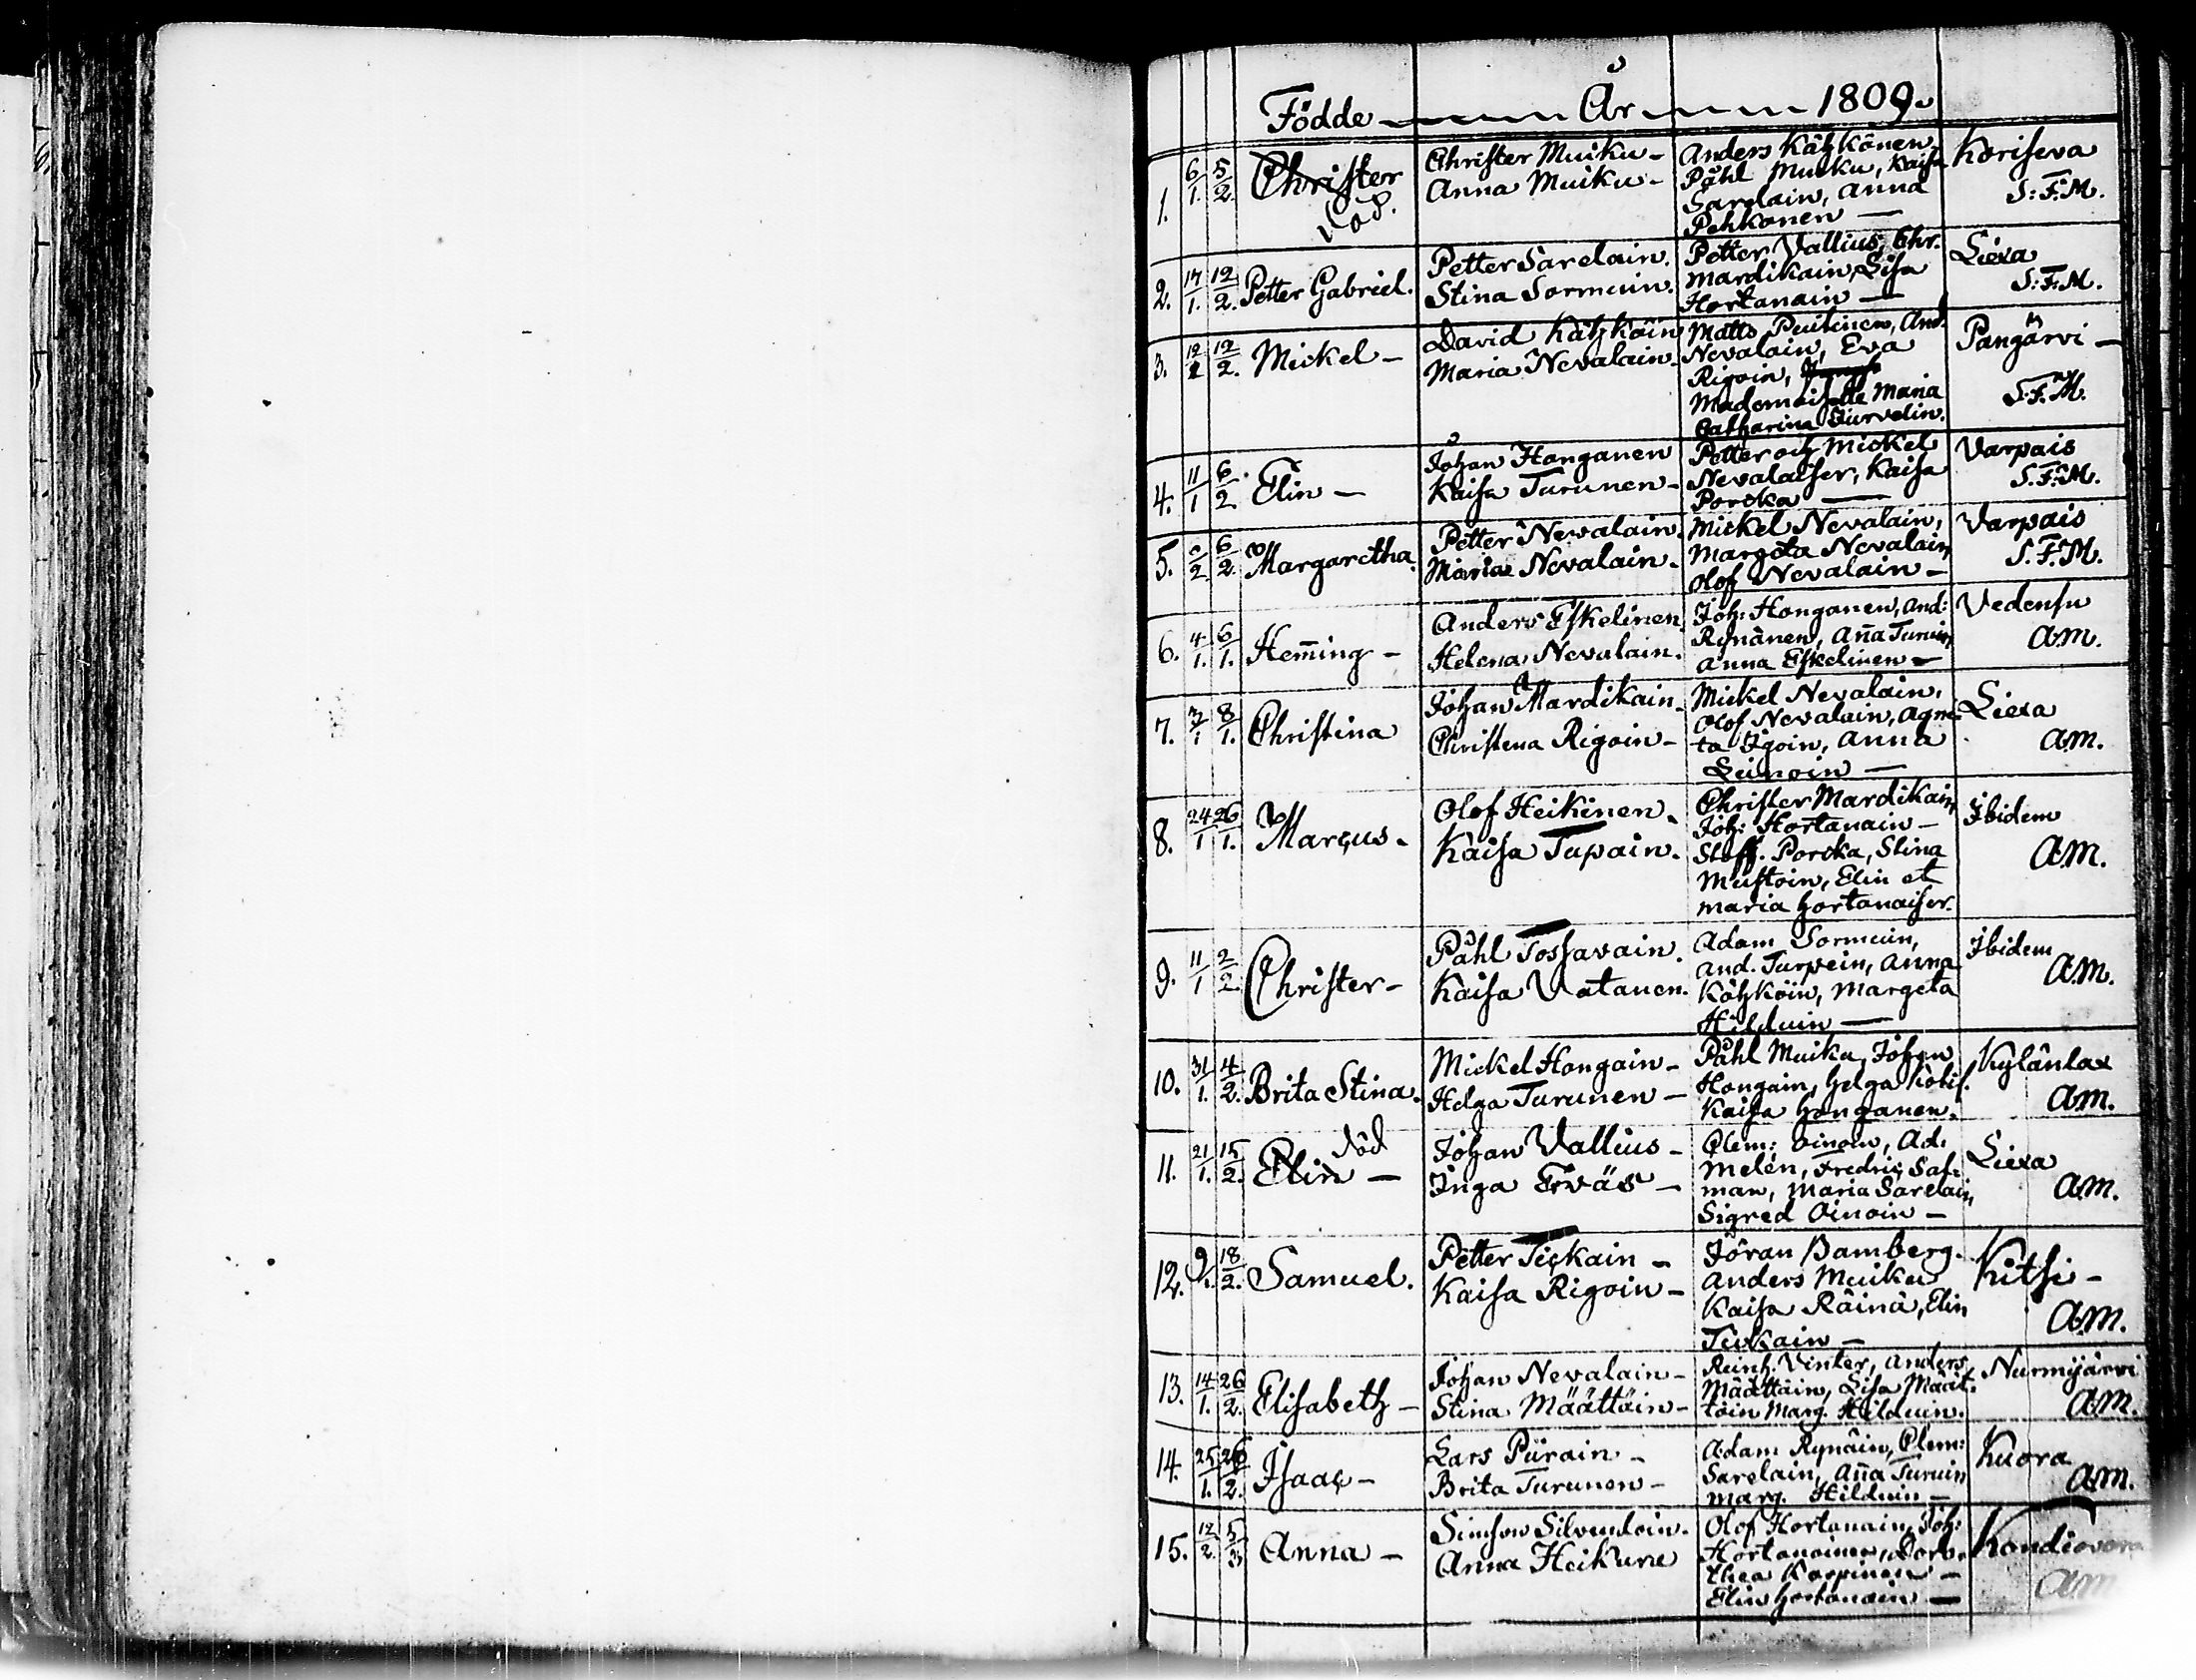 Födde År 1809.
1. 6/1. 5/2. Christer död. Christer Muiku - Anna Muiku - Anders Kåhkönen, Påhl Muiku, Kaisa Sarelain, Anna Pehkonen - Koriseva S:F:M.
2. 17/1. 12/2. Petter Gabriel. Petter Sarelain. Stina Sormuin. Petter Vallius, Chr. Mardikain, Lisa Hortanain - Liexa S:F:M.
3. 12/2 12/2. Mickel - David Kåhköin Maria Nevalain - Matts Puitinen, And. Nevalain, Eva Rigoin, Mademoiselle Maria Catharina Turvelin. Pangärvi - S.F.M.
4. 11/1 6/2. Elin - Johan Honganen Kaisa Turunen - Petter och Mickel Nevalaiser, Kaisa Porcka - Varpais S.F.M.
5. 2/2 6/2. Margaretha. Petter Nevalain. Maria Nevalain. Mickel Nevalain, Margeta Nevalain, Olof Nevalain - Varpais S.F.M.
6. 4/1. 6/1. Hem̄ing - Anders Eskelinen. Helena Nevalain. Joh: Honganen, And: Rynänen, Aña Turuin, Anna Eskelinen - Vedensu A.M.
7. 3/1 8/1. Christina Johan Mardikain - Christena Rigoin - Mickel Nevalain, Olof Nevalain, Agne- ta Igoin, Anna Leinoin - Liexa A.M.
8. 24/1 26/1. Marcus. Olof Heikinen. Kaisa Tupain. Christer Mardikain, Joh: Hortanain - Stoff. Porcka, Stina Mustoin, Elin et Maria Hortanaiser. Ibidem A.M.
9. 11/1 2/2 Christer - Påhl Tossavain. Kaisa Vatanen. Adam Sormuin, And. Turpein, Anna Kåhköin, Margeta Hilduin - Ibidem A.M.
10. 31/1. 4/2. Brita Stina. Mickel Hongain - Helga Turunen - Påhl Muiku, Johan Hongain, Helga Kobil. Kaisa Honganen. Kylänlax A.M.
11. 21/1. 15/2. Elin - död Johan Vallius - Inga Erväs - Clem: Oinoin, Ad. Melén, Fredric Sal- man, Maria Sarelain, Sigred Oinoin - Liexa A.M.
12. 9/1. 18/2. Samuel. Petter Tickain - Kaisa Rigoin - Jöran Bamberg. Anders Muiku Kaisa Räinä, Elin Tickain - Kitsi - A.M.
13. 14/1. 26/2. Elisabeth - Johan Nevalain - Stina Määttäin - Reinh. Vinter, Anders Määttäin, Lisa Määt- täin Marg. Hilduin. Nurmijärvi A.M.
14. 25/1. 26/2. Isaac - Lars Piirain - Brita Turunen - Adam Rynäin, Clem: Sarelain, Aña Turuin Marg. Hilduin - Kuora A.M.
15. 12/2. 5/3 Anna - Simson Silvendoin. Anna Heikure Olof Hortanain, Joh: Hortanainen, Doro- thea Karpinen - Elin Hortanain - Kondiovara A.M.